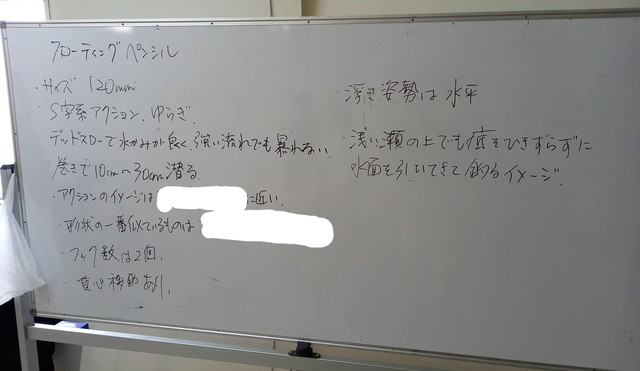 フローティングペンシル
・サイズ 120mm
・S字系アクション、ゆらぎ。
・デッドスローで水がみが良く、強い流れでも暴れない
・巻きで10cm〜30cm潜る。
・アクションのイメージは に近い。
・形状の一番似ているものは
・フック数は2個。
・重心移動あり。
・浮き姿勢は水平
・浅い瀬の上でも底をひきずらずに
水面を引いてきて釣るイメージ。